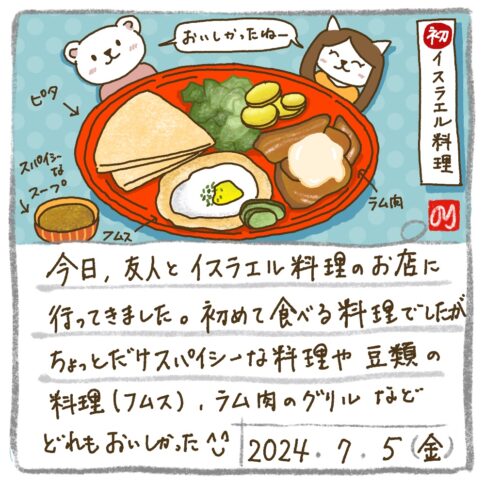 おいしかったねー
初
イスラエル料理
ピタ
スパイシー
な
スープ
フムス
ラム肉
今日、友人とイスラエル料理のお店に
行ってきました。初めて食べる料理でしたが
ちょっとだけスパイシーな料理や豆類の
料理(フムス)、ラム肉のグリルなど
どれもおいしかった^^
2024.7.5(金)